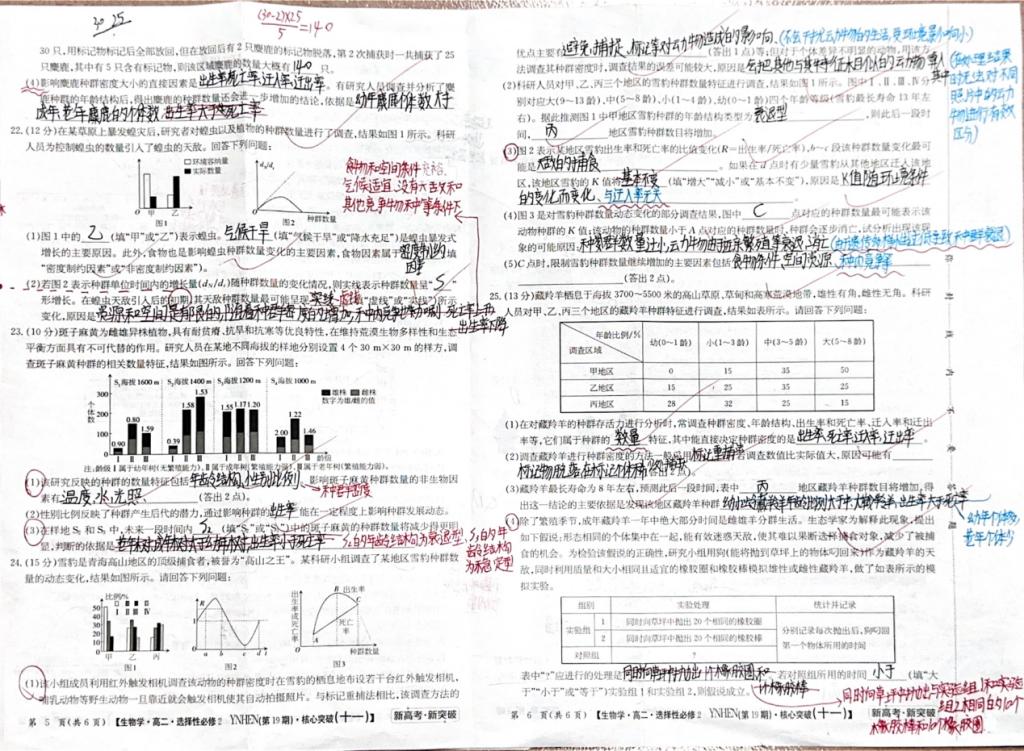 30 25
(30-2)×25
5
=140
30只,用标记物标记后全部放回,但在放回后有2只麋鹿的标记物脱落,第2次捕获时一共捕获了25
只麋鹿,其中有5只含有标记物,则该区域麋鹿的数量大概有140只。
(4)影响麋鹿种群密度大小的直接因素是出生率死亡率、迁入率迁出率。有研究人员调查并分析了麋
鹿种群的年龄结构后,得出麋鹿的种群数量还会进一步增加的结论,依据是幼年麋鹿个体数大于
成年、老年麋鹿的个体数,出生率大于死亡率
22.(12分)在某草原上暴发蝗灾后,研究者对蝗虫以及植物的种群数量进行了调查,结果如图1所示。科研
人员为控制蝗虫的数量引入了蝗虫的天敌。回答下列问题:
□环境容纳量
■实际数量
甲 乙
图1
dN/dt
种群数量
图2
食物和空间条件充裕、
气候适宜、没有天敌和
其他竞争物种等条件下
(1)图1中的乙(填“甲”或“乙”)表示蝗虫。气候干旱(填“气候干旱”或“降水充足”)是蝗虫暴发式
增长的主要原因。此外,食物也是影响蝗虫种群数量变化的主要因素,食物因素属于密度制约因素(填
“密度制约因素”或“非密度制约因素”)。
(2)若图2表示种群单位时间内的增长量(dN/dt)随种群数量的变化情况,则实线表示种群数量呈“S”
形增长。在蝗虫天敌引入后的初期,其天敌种群数量最可能呈现实线 虚线(填“虚线”或“实线”)所示
变化,原因是
资源和空间是有限的,随着种群密度的增加,种内竞争加剧 死亡率上升
出生率下降
23.(10分)斑子麻黄为雌雄异株植物,具有耐贫瘠、抗旱和抗寒等优良特性,在维持荒漠生物多样性和生态
平衡方面具有不可代替的作用。研究人员在某地不同海拔的样地分别设置4个30 m×30 m的样方,调
查斑子麻黄的相关数量特征,结果如图所示。回答下列问题:
个体数
S₁海拔1600 m S₂海拔1400 m S₃海拔1200 m S₄海拔1000 m
■雄株 ■雌株
数字为雄/雌的值
300
200
100
0
0.90 0.80 1.59 0.39 1.58 1.53 1.55 1.17 1.20 2.00 1.22 1.46
Ⅰ Ⅱ Ⅲ Ⅰ Ⅱ Ⅲ Ⅰ Ⅱ Ⅲ Ⅰ Ⅱ Ⅲ 龄级
注:龄级Ⅰ属于幼年树(无繁殖能力),Ⅱ属于成年树(繁殖能力强),Ⅲ属于老年树(繁殖能力弱)。
(1)该研究反映的种群的数量特征包括年龄结构、性别比例、种群密度。影响斑子麻黄种群数量的非生物因
素有温度、水、光照(答出2点)。
(2)性别比例反映了种群产生后代的潜力,通过影响种群的出生率能在一定程度上影响种群发展动态。
(3)在样地S₁和S₂中,未来一段时间内S₂(填“S₁”或“S₂”)中的斑子麻黄的种群数量将减少得更明
显,判断的依据是老年树、成年树大于幼年树,出生率小于死亡率 S₂的年龄结构为衰退型,S₁的年
龄结构
为稳定型
24.(15分)雪豹是青海高山地区的顶级捕食者,被誉为“高山之王”。某科研小组调查了某地区雪豹种群数
量的动态变化,结果如图所示。请回答下列问题:
比例/%
□Ⅰ Ⅱ Ⅲ ■Ⅳ
50
40
30
20
10
0
甲 乙 丙
图1
R
1
a b c d t
图2
出生率或死亡率
B 出生率
C
A
死亡率
种群数量
图3
(1)该小组成员利用红外触发相机调查该动物的种群密度时在雪豹的栖息地布设若干台红外触发相机,
哺乳动物等野生动物一旦靠近就会触发相机使其自动拍摄照片。与标记重捕法相比,该调查方法的
第 5 页(共6页) 【生物学·高二·选择性必修2 YNHEN(第19期)·核心突破(十一)】 新高考·新突破
优点主要有避免捕捉、标记等对动物造成的影响。(不会干扰动物的生活,受环境影响小)(答出1点)等;但对于个体差异不明显的动物,用该方
法调查其种群密度时,调查结果的误差可能较大,原因是会把其他与其特征相似的动物算入其中
(2)科研人员对甲、乙、丙三个地区的雪豹种群数量特征进行调查,结果如图1所示。图中Ⅰ、Ⅱ、Ⅲ、Ⅳ分
别对应大(9~13龄)、中(5~8龄)、小(1~4龄)、幼(0~1龄)四个年龄等级(雪豹最长寿命13年左
右)。据此推测图1中甲地区雪豹种群的年龄结构类型为衰退型,则此后一段时
间,丙地区雪豹种群数目将增加。
(3)图2表示某地区雪豹出生率和死亡率的比值变化(R=出生率/死亡率),b~c段该种群数量变化最可
能是。如果在d点时有少量雪豹从其他地区迁入该地
区,该地区雪豹的K值将基本不变(填“增大”“减小”或“基本不变”),原因是K值随环境条件
的变化而变化,与迁入率无关
(4)图3是对雪豹种群数量动态变化的部分调查结果,图中C点对应的种群数量最可能表示该
动物种群的K值;该动物的数量小于A点对应的种群数量时,种群会逐步消亡,试分析出现该现
象的可能原因:
(5)C点时,限制雪豹种群数量继续增加的主要因素包括食物条件、空间资源、种内竞争
(答出2点)。
25.(13分)藏羚羊栖息于海拔3700~5500米的高山草原,草甸和高寒荒漠地带,雄性有角,雌性无角。科研
人员对甲、乙、丙三个地区的藏羚羊种群特征进行调查,结果如表所示。请回答下列问题:
年龄比例/% 调查区域 幼(0~1龄) 小(1~3龄) 中(3~5龄) 大(5~8龄)
甲地区 0 15 35 50
乙地区 15 25 25 15
丙地区 28 32 25 15
(1)在对藏羚羊的种群存活力进行分析时,常调查种群密度、年龄结构、出生率和死亡率、迁入率和迁出
率等,它们属于种群的数量特征,其中能直接决定种群密度的是出生率、死亡率、迁入率、迁出率。
(2)调查藏羚羊种群密度的方法一般采用标记重捕法,若调查数值比实际值大,原因可能有
标记物脱落、
(3)藏羚羊最长寿命为8年左右,预测此后一段时间,表中丙地区藏羚羊种群数目将增加,得
出这一结论的主要依据是发现该地区藏羚羊种群
幼年个体多
老年个体少
(4)除了繁殖季节,成年藏羚羊一年中绝大部分时间是雌雄羊分群生活。生态学家为解释此现象,提出
如下假说:形态相同的个体集中在一起,能有效迷惑天敌,使其难以果断选择捕食对象,减少了被捕
食的机会。为检验该假说的正确性,研究小组用狗(能将抛到草坪上的物体叼回来)作为藏羚羊的天
敌,同时利用质量和大小相同且适宜的橡胶圈和橡胶棒模拟雄性或雌性藏羚羊,做了如表所示的模
拟实验。
组别 实验处理 统计并记录
实验组 1 同时向草坪中抛出20个相同的橡胶圈
2 同时向草坪中抛出20个相同的橡胶棒
分别记录每次抛出后,狗叼回第一个物体所用的时间
对照组 ?
表中“?”应进行的处理是同时向草坪中抛出10个橡胶圈和10个橡胶棒。若对照组所用的时间小于(填“大
于”“小于”或“等于”)实验组1和实验组2,则假说成立。
同时向草坪中抛出与实验组1和实验
组2相同的10个
橡胶棒和10个橡胶圈
第 6 页(共6页) 【生物学·高二·选择性必修2 YNHEN(第19期)·核心突破(十一)】 新高考·新突破